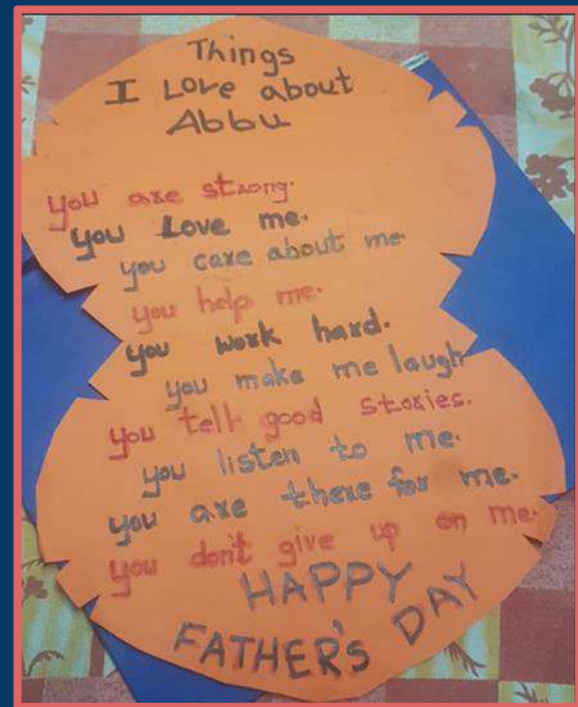 Things
I Love about
Abbu
you are strong.
you Love me.
you care about me.
you help me.
you work hard.
you make me laugh
you tell good stories.
you listen to me.
you are there for me.
you don't give up on me.
HAPPY
FATHER'S DAY